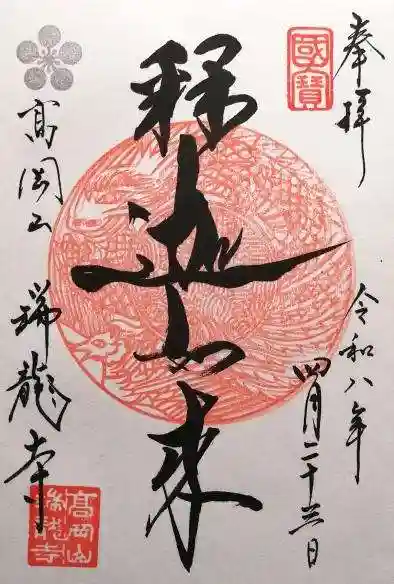 奉拝
國寶
令和八年
四月二十三日
釋迦如来
高岡山
瑞龍寺
高岡山
瑞龍寺